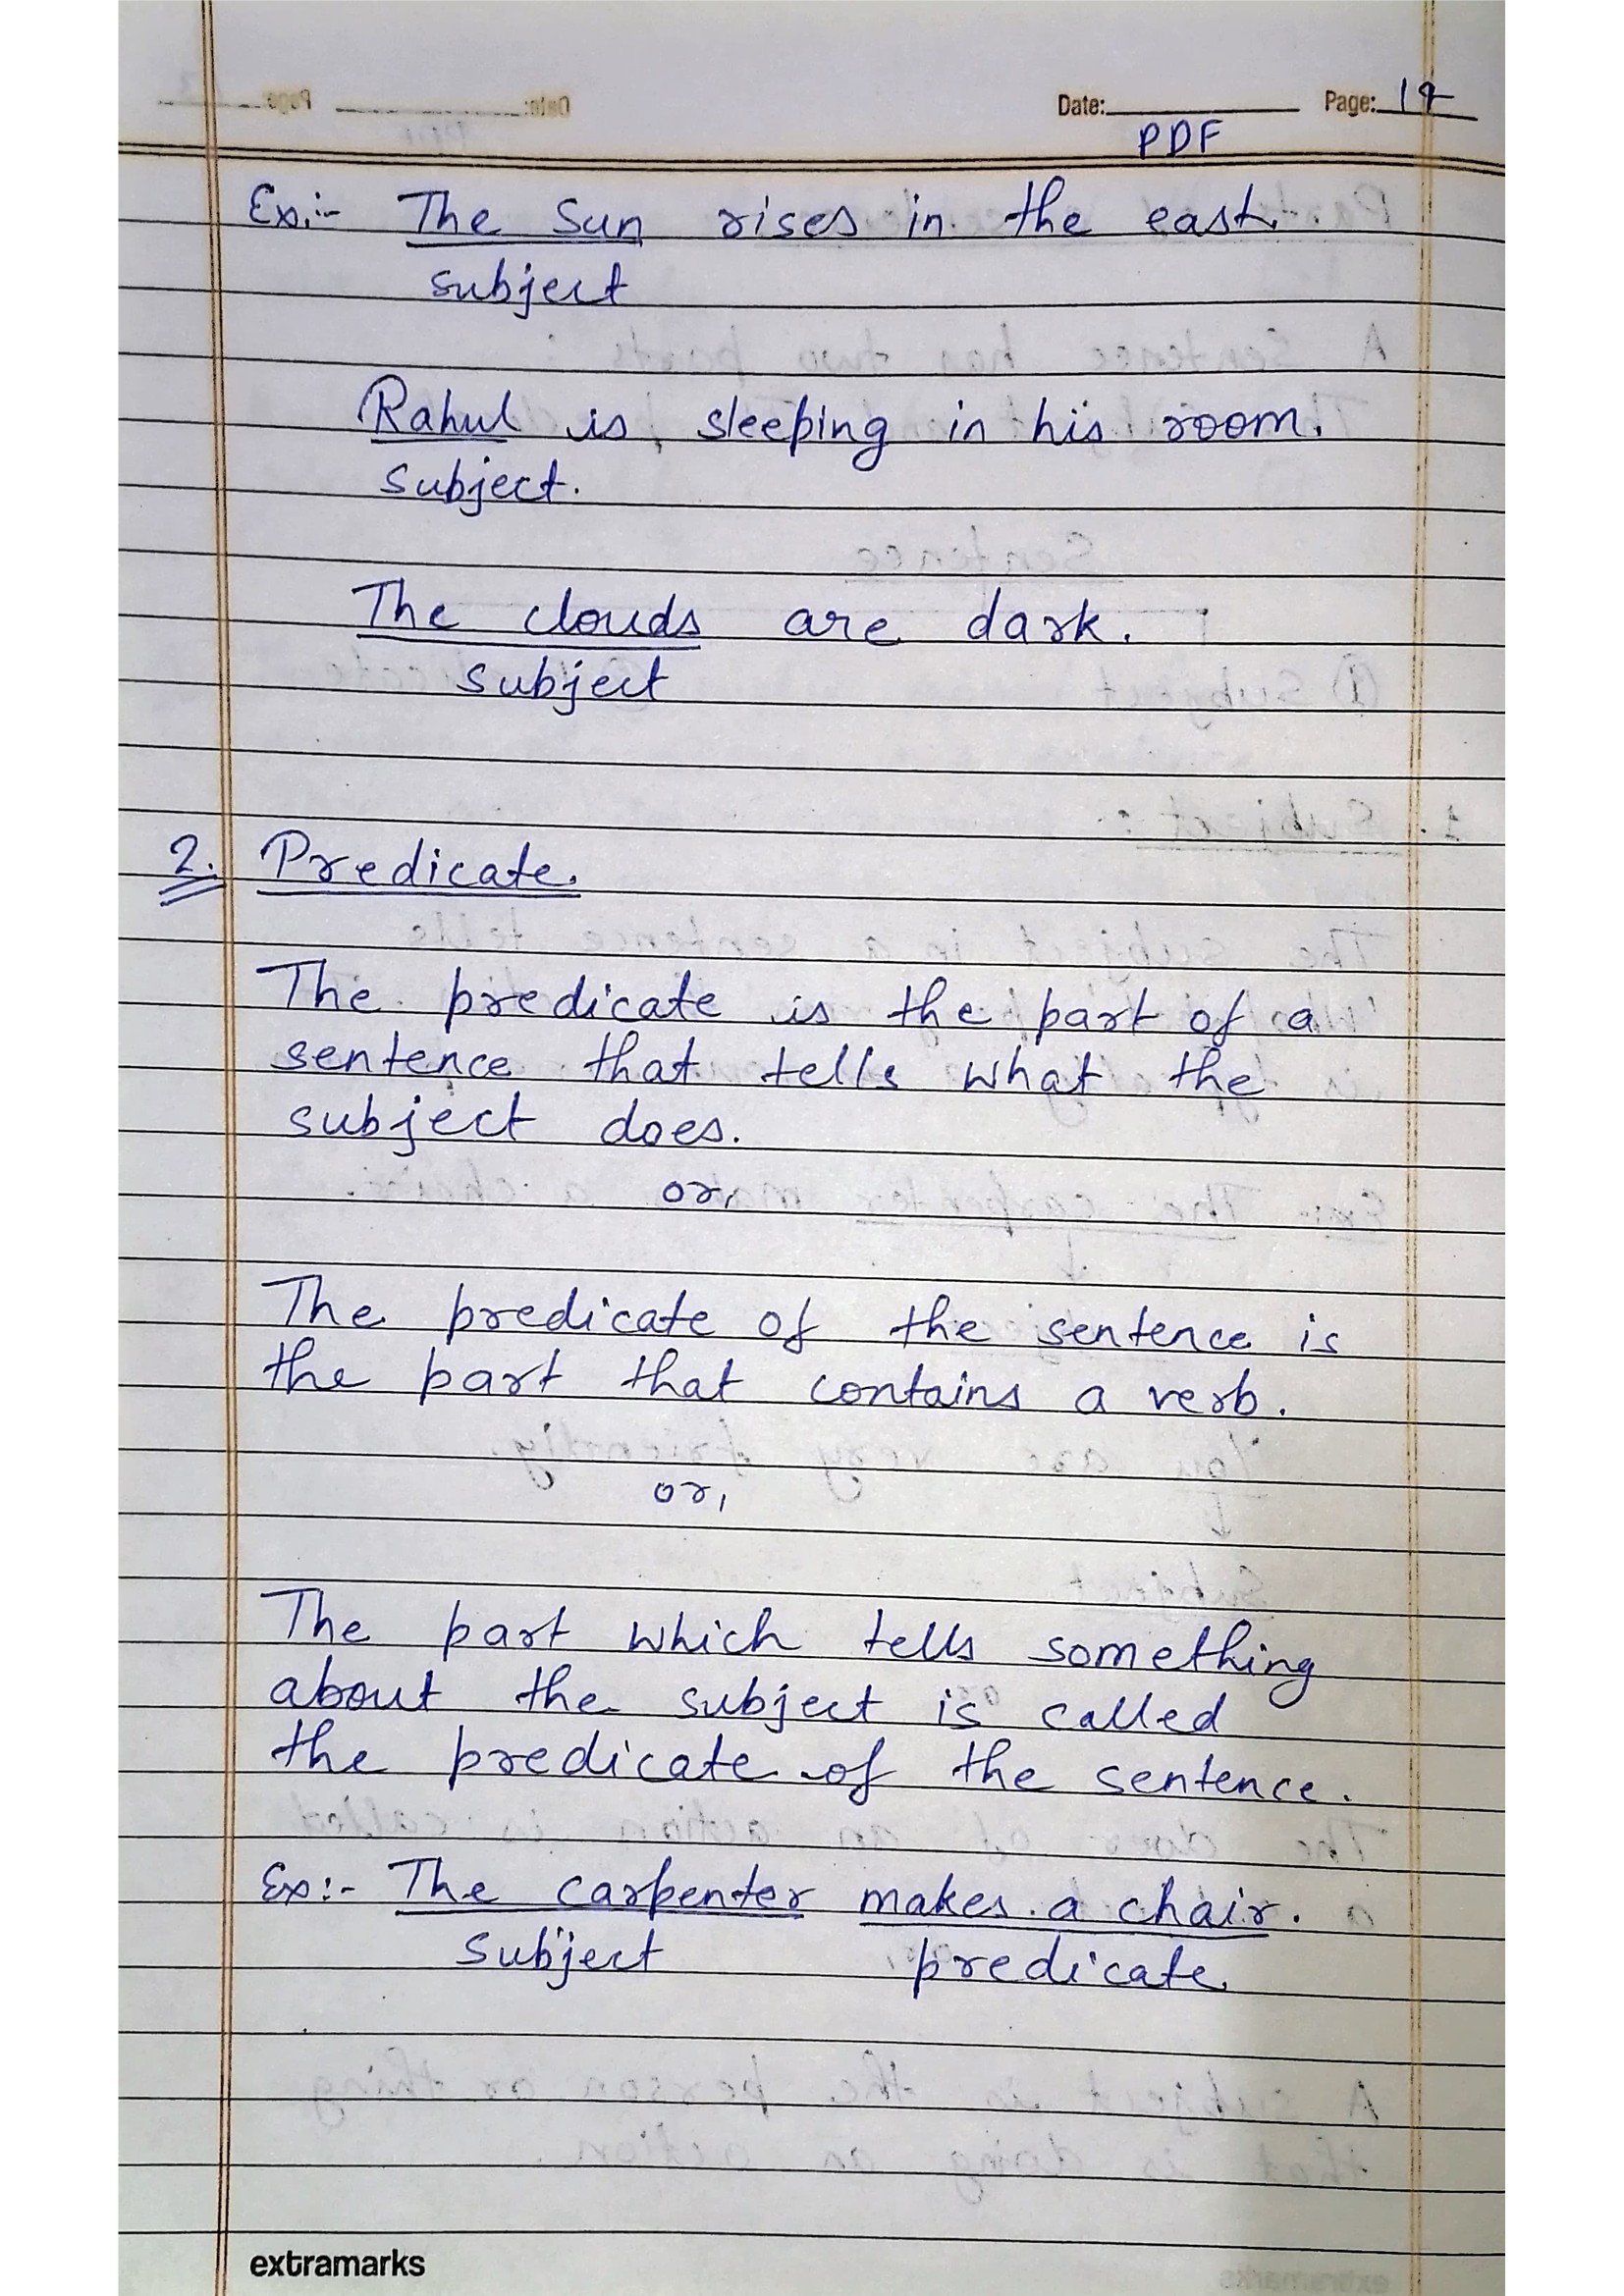 Date: Page:
PDF
Ex:- The Sun rises in the east.
subject
Rahul is sleeping in his room.
Subject.
The clouds are dark.
subject
2. Predicate.
The predicate is the part of a
sentence that tells what the
subject does.
or,
The predicate of the sentence is
the part that contains a verb.
or,
The part which tells something
about the subject is called
the predicate of the sentence.
Ex:- The carpenter makes a chair.
Subject predicate
extramarks